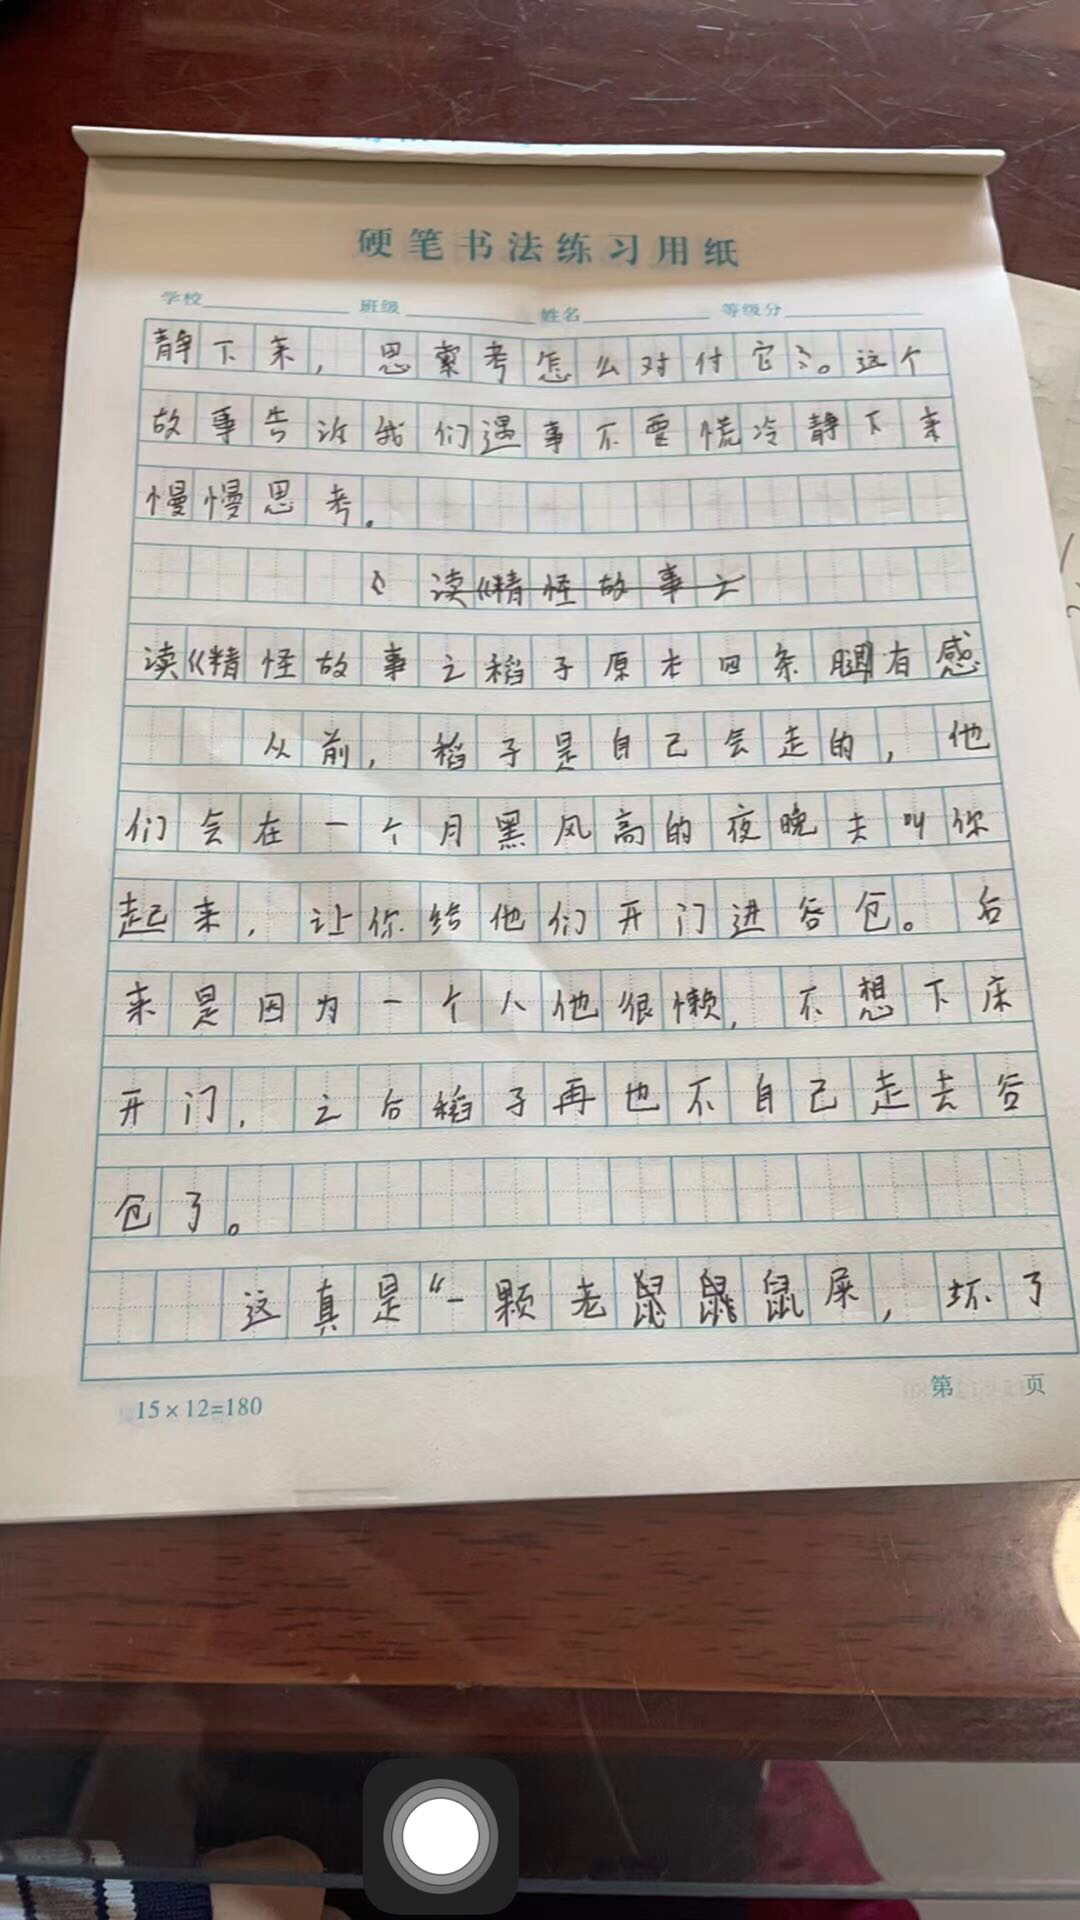 硬笔书法练习用纸
学校 班级 姓名 等级分
静下来，思索考怎么对付它。这个
故事告诉我们遇事不要慌冷静下来
慢慢思考。
读《精怪故事之
读《精怪故事之稻子原本四条腿有感
从前，稻子是自己会走的，他
们会在一个月黑风高的夜晚去叫你
起来，让你给他们开门进谷仓。后
来是因为一个人他很懒，不想下床
开门，之后稻子再也不自己走去谷
仓了。
这真是“一颗老鼠鼠鼠屎，坏了
15×12=180
第 页